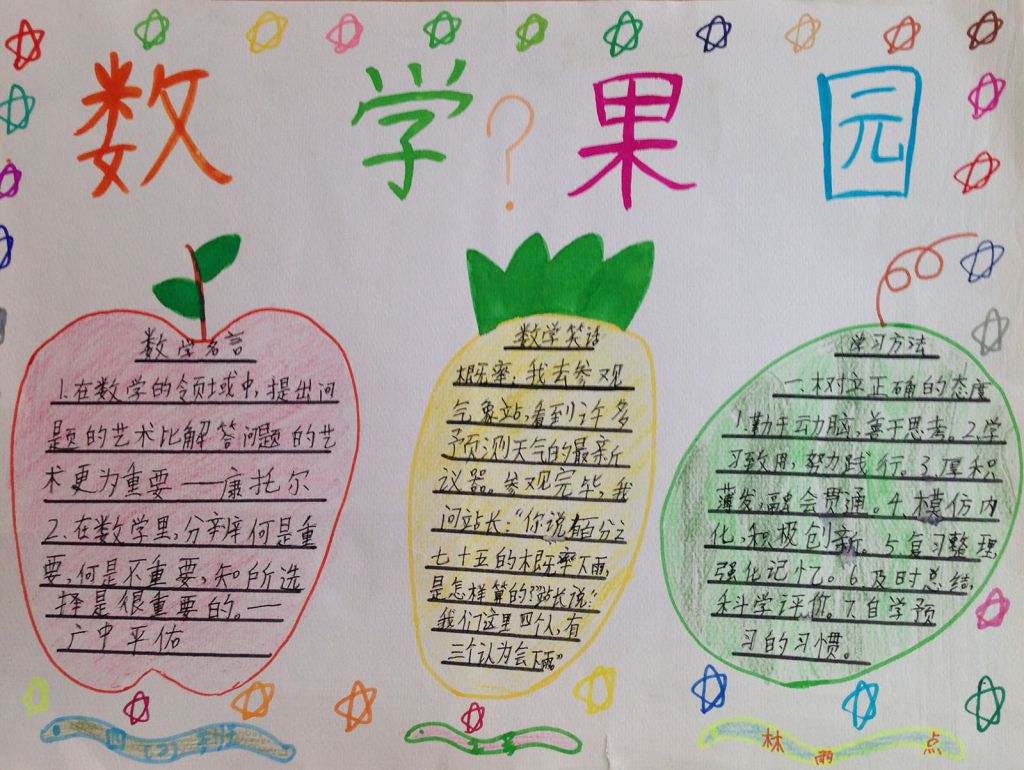 数学?果园
数学名言
1.在数学的领域中,提出问
题的艺术比解答问题的艺
术更为重要——康托尔
2.在数学里,分辨何是重
要,何是不重要,知所选
择是很重要的。——
广中平佑
数学笑话
概率:我去参观
气象站,看到许多
予页测天气的最新
议器。参观完毕,我
问站长:“你说有百分之
七十五的概率下雨,
是怎样算的?”站长说:“
我们这里四个人,有
三个认为会下雨”
学习方法
一、树立正确的态度
1.勤于动脑,善于思考。2.学
习致用,努力践行。3.厚积
薄发,融会贯通。4.模仿内
化,积极创新。5.复习整理,
强化记忆。6.及时总结,
科学评价。7.自学预
习的习惯。
四(2)班
林雨点